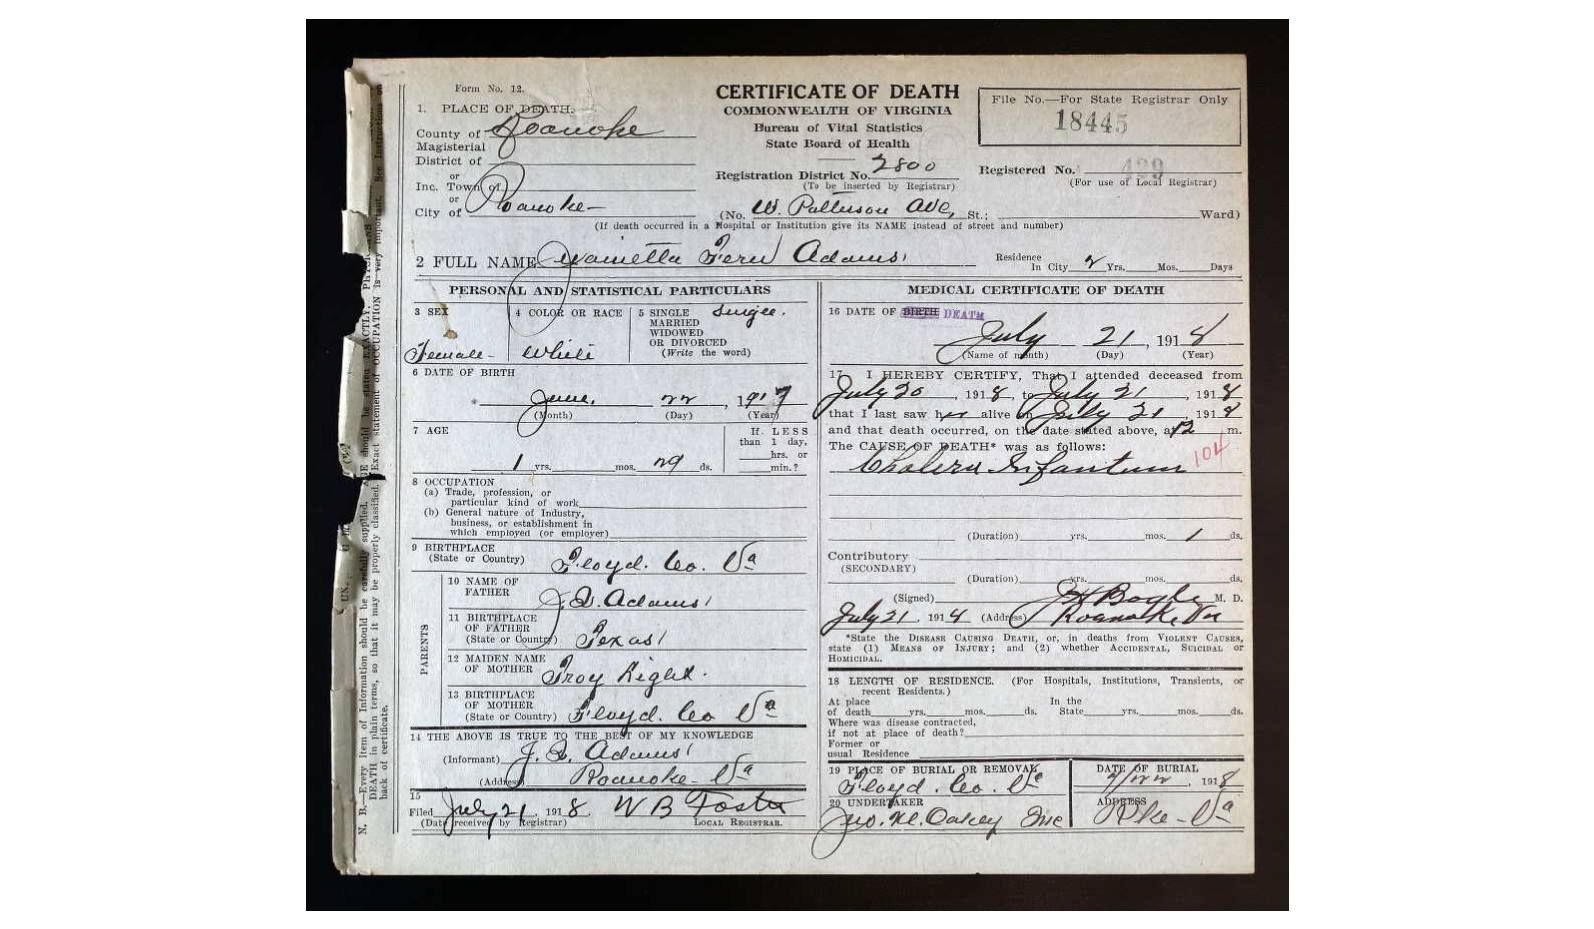 Form No. 12.
CERTIFICATE OF DEATH
COMMONWEALTH OF VIRGINIA
Bureau of Vital Statistics
State Board of Health
File No.—For State Registrar Only
18445
1. PLACE OF DEATH.
County of Roanoke
Magisterial
District of
or
Inc. Town of
or
City of Roanoke
Registration District No. 2800
(To be inserted by Registrar)
Registered No. 429
(For use of Local Registrar)
(No. W. Patterson Ave, St.; Ward)
(If death occurred in a Hospital or Institution give its NAME instead of street and number)
2 FULL NAME Fern Adams
Residence
In City 2 Yrs. Mos. Days
PERSONAL AND STATISTICAL PARTICULARS
3 SEX
Female
4 COLOR OR RACE
White
5 SINGLE
MARRIED
WIDOWED
OR DIVORCED
(Write the word)
Single.
6 DATE OF BIRTH
June, 22, 1917
(Month) (Day) (Year)
7 AGE
1 yrs. mos. 29 ds.
If LESS
than 1 day,
hrs. or
min.?
8 OCCUPATION
(a) Trade, profession, or
particular kind of work
(b) General nature of Industry,
business, or establishment in
which employed (or employer)
9 BIRTHPLACE
(State or Country) Floyd. Co. Va
PARENTS
10 NAME OF
FATHER
Adams
11 BIRTHPLACE
OF FATHER
(State or Country) Texas
12 MAIDEN NAME
OF MOTHER Troy Kight.
13 BIRTHPLACE
OF MOTHER
(State or Country) Floyd. Co Va
14 THE ABOVE IS TRUE TO THE BEST OF MY KNOWLEDGE
(Informant) Adams
(Address) Roanoke Va
15
Filed July 21, 1918. W B Foster
(Date received by Registrar) LOCAL REGISTRAR.
MEDICAL CERTIFICATE OF DEATH
16 DATE OF BIRTH DEATH
July 21, 1918
(Name of month) (Day) (Year)
17 I HEREBY CERTIFY, That I attended deceased from
July 20, 1918, to July 21, 1918
that I last saw her alive on July 21, 1918
and that death occurred, on the date stated above, at 12 m.
The CAUSE OF DEATH* was as follows:
Cholera Infantum 104
(Duration) yrs. mos. 1 ds.
Contributory
(SECONDARY)
(Duration) yrs. mos. ds.
(Signed) J H Bogle M. D.
July 21, 1918 (Address) Roanoke Va
*State the DISEASE CAUSING DEATH, or, in deaths from VIOLENT CAUSES,
state (1) MEANS OF INJURY; and (2) whether ACCIDENTAL, SUICIDAL or
HOMICIDAL.
18 LENGTH OF RESIDENCE. (For Hospitals, Institutions, Transients, or
recent Residents.)
At place In the
of death yrs. mos. ds. State yrs. mos. ds.
Where was disease contracted,
if not at place of death?
Former or
usual Residence
19 PLACE OF BURIAL OR REMOVAL
Floyd. Co. Va
DATE OF BURIAL
7/22, 1918
20 UNDERTAKER
Jno. M. Oakey Inc
ADDRESS
Rke Va
N. B.—Every item of Information should be carefully supplied. AGE should be stated EXACTLY.
DEATH in plain terms, so that it may be properly classified. Exact statement of OCCUPATION is very important. See Instructions on
back of certificate.